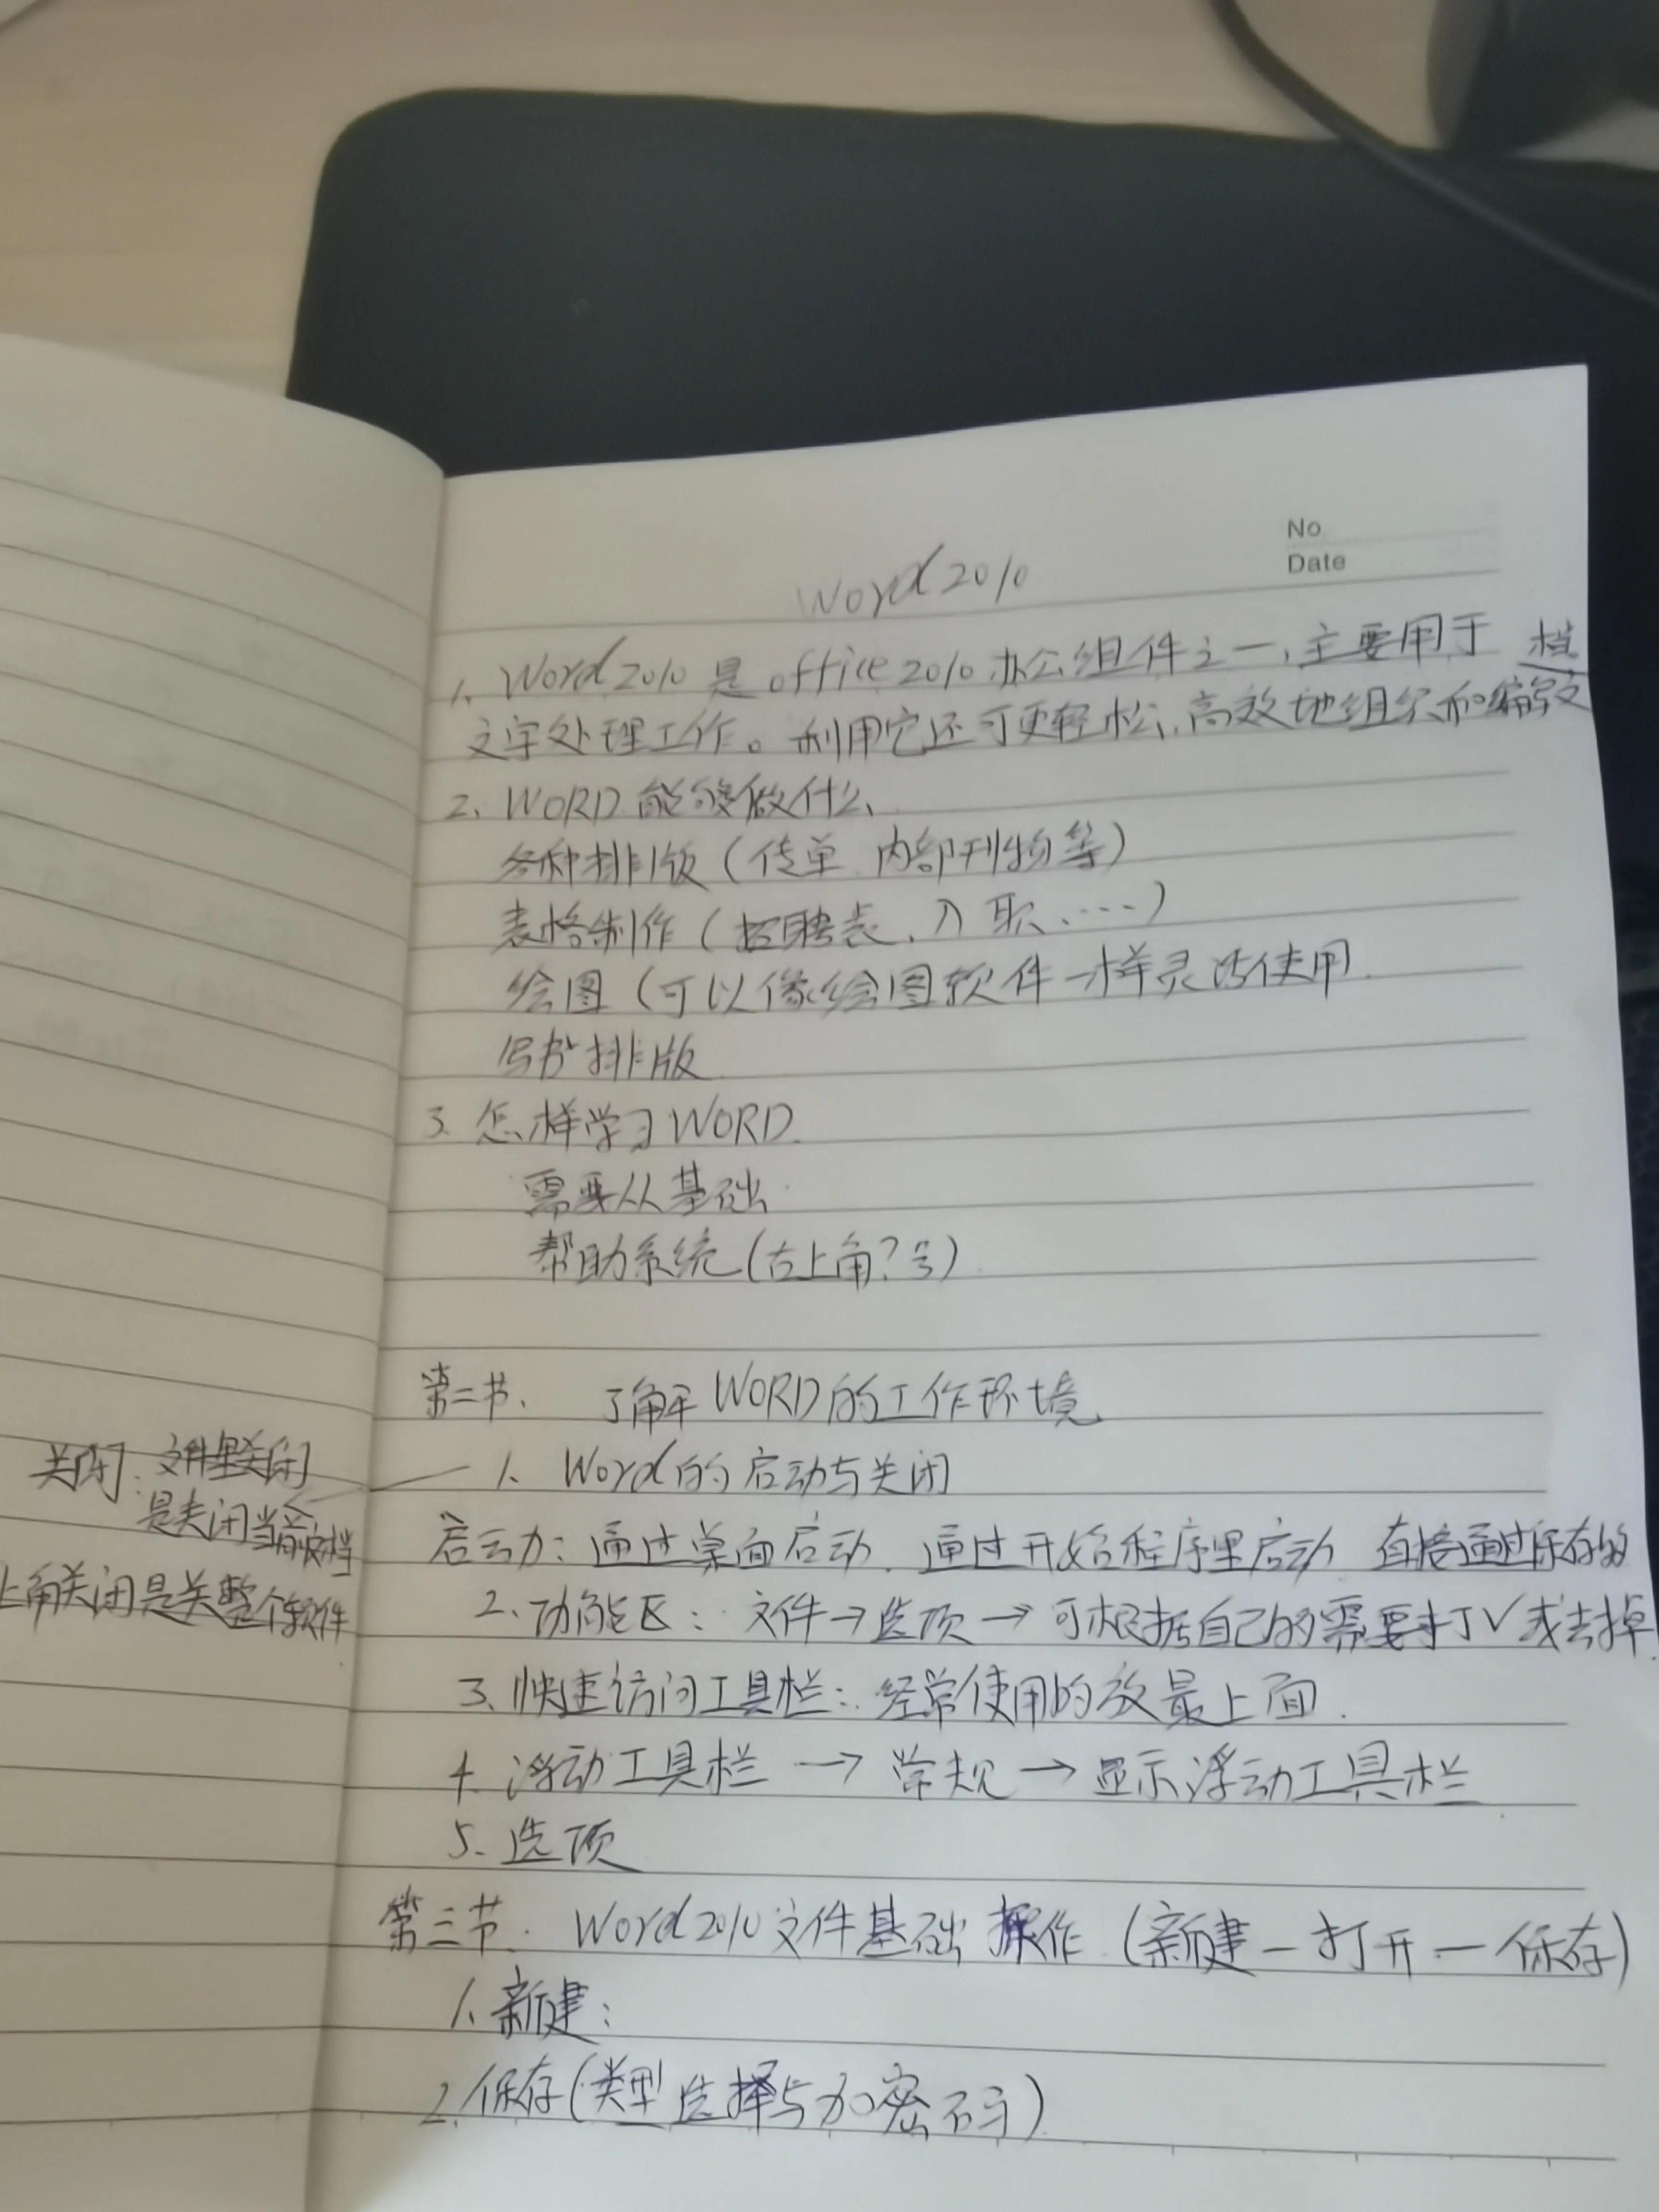 No
Date
Word 2010
1、Word 2010 是 office 2010 办公组件之一，主要用于
文字处理工作。利用它还可更轻松、高效地组织和编写文
档
2、WORD 能够做什么
各种排版（传单、内部刊物等）
表格制作（招聘表、入职、····）
绘图（可以像绘图软件一样灵活使用
写书排版
3. 怎样学习 WORD
需要从基础
帮助系统（右上角？号）
第二节、 了解 WORD 的工作环境
1、Word 的启动与关闭
关闭：文件里关闭
是关闭当前文档
上角关闭是关整个软件
启动：通过桌面启动、通过开始程序里启动 直接通过保存的
2、功能区：文件→选项→可根据自己的需要打√或去掉
3、快速访问工具栏：经常使用的放最上面.
4. 浮动工具栏 → 常规 → 显示浮动工具栏
5、选项
第三节. Word 2010 文件基础操作（新建—打开—保存）
1、新建：
2.保存（类型选择与加密码）